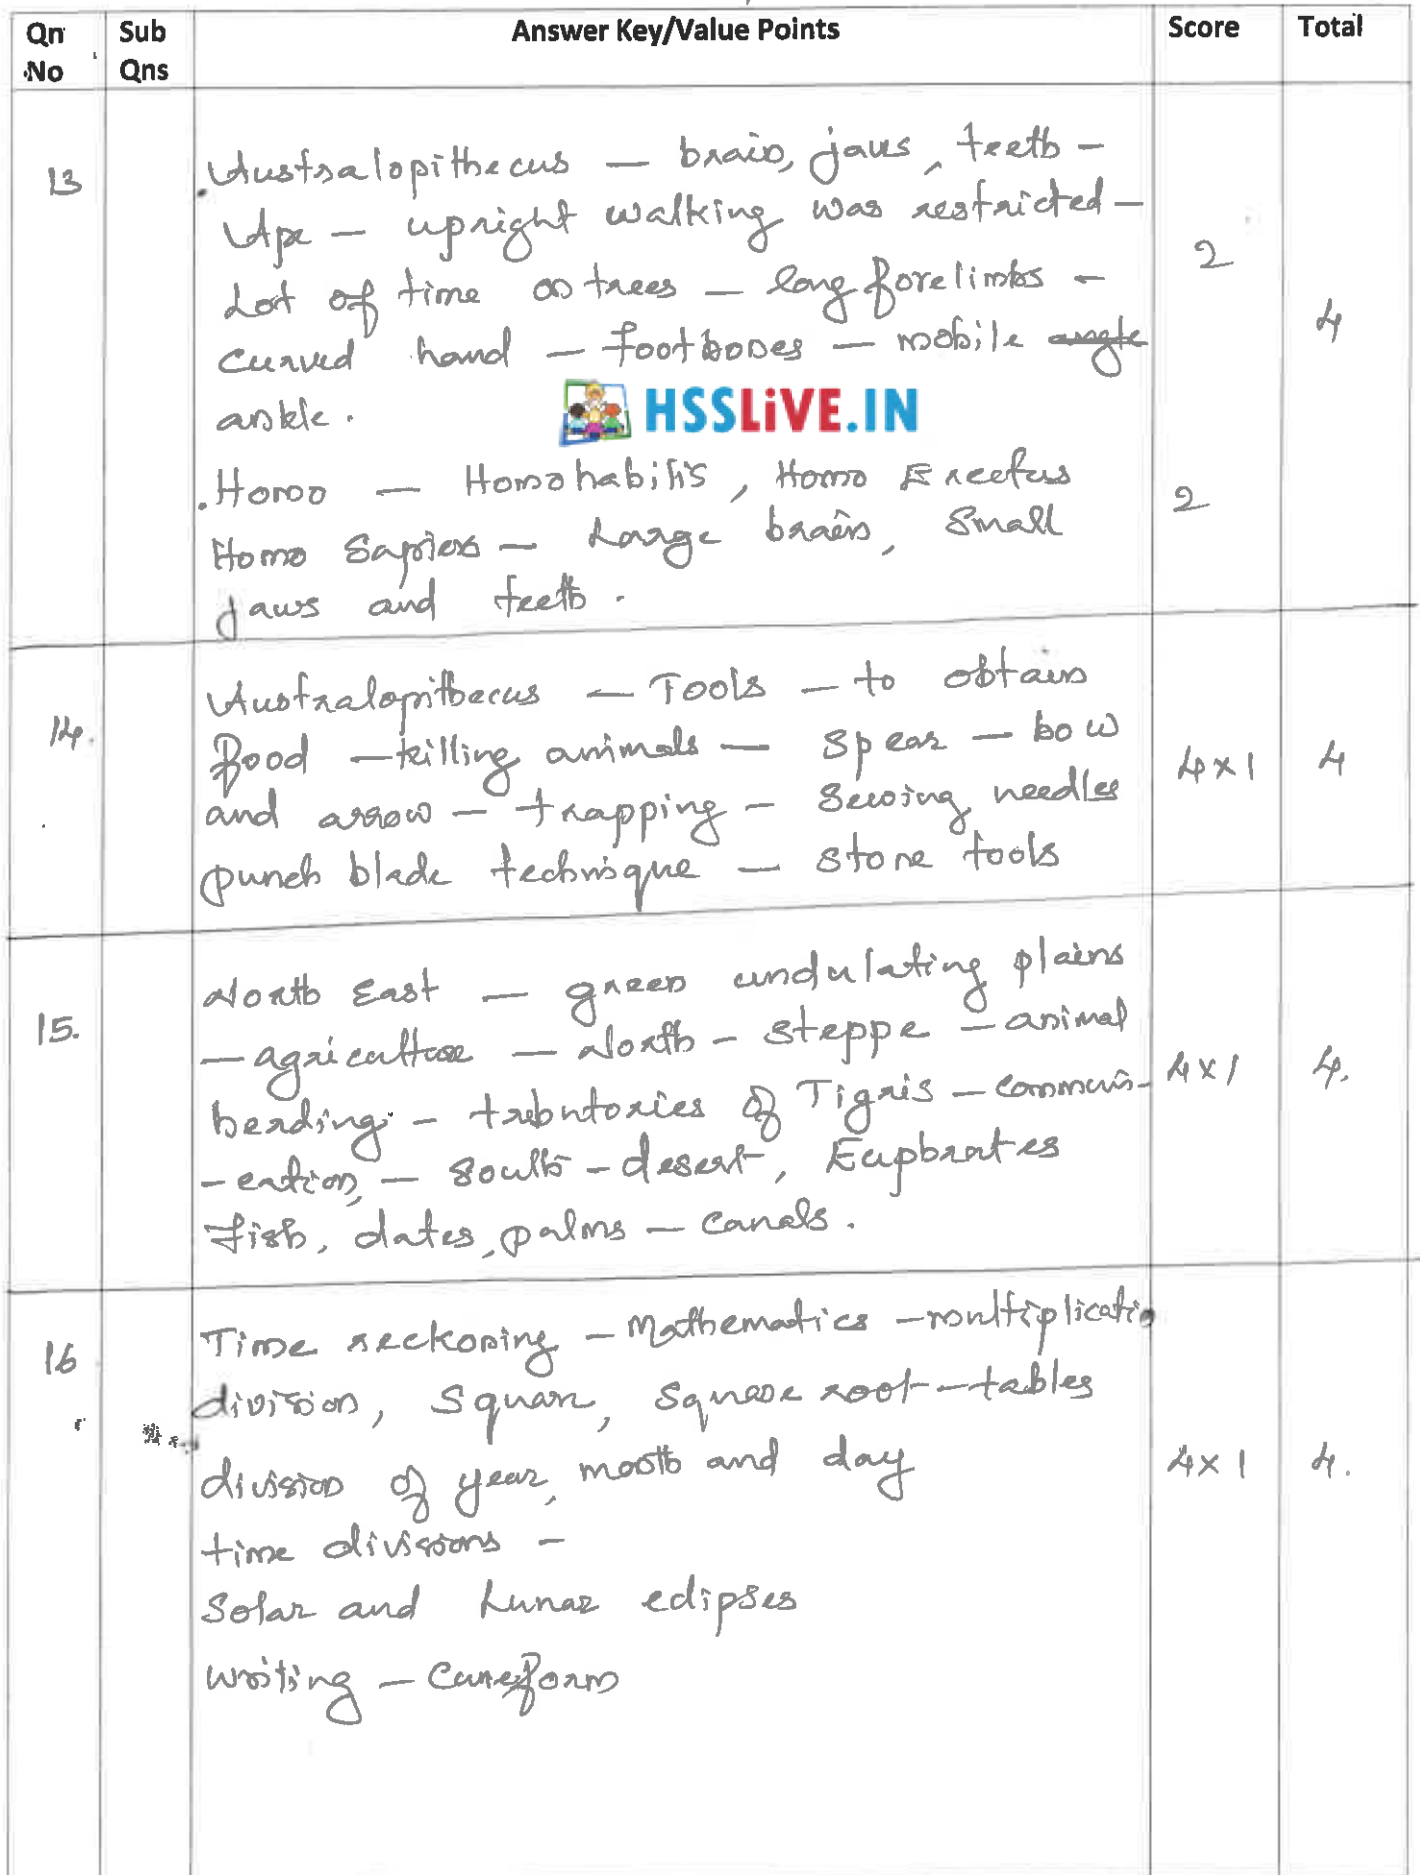 Qn No Sub Qns Answer Key/Value Points Score Total
13 Australopithecus — brain, jaws, teeth —
Ape — upright walking was restricted —
Lot of time on trees — long forelimbs — 2
curved hand — foot bones — mobile angle 4
ankle.
HSSLiVE.IN
Homo — Homohabilis, Homo Erectus 2
Homo Sapiens — Large brain, Small
jaws and teeth.
14. Australopithecus — Tools — to obtain
food — killing animals — Spear — bow
and arrow — trapping — Sewing needles 4 x 1 4
punch blade technique — stone tools
North East — green undulating plains
15. — agriculture — North — steppe — animal
herding — tributories of Tigris — communi- 4 x 1 4.
-cation, — South — desert, Euphrates
Fish, dates, palms — canals.
16 Time reckoning — Mathematics — multiplicatio
division, Square, Square root — tables
division of year, month and day 4 x 1 4.
time divisions —
Solar and Lunar eclipses
Writing — Cuneform